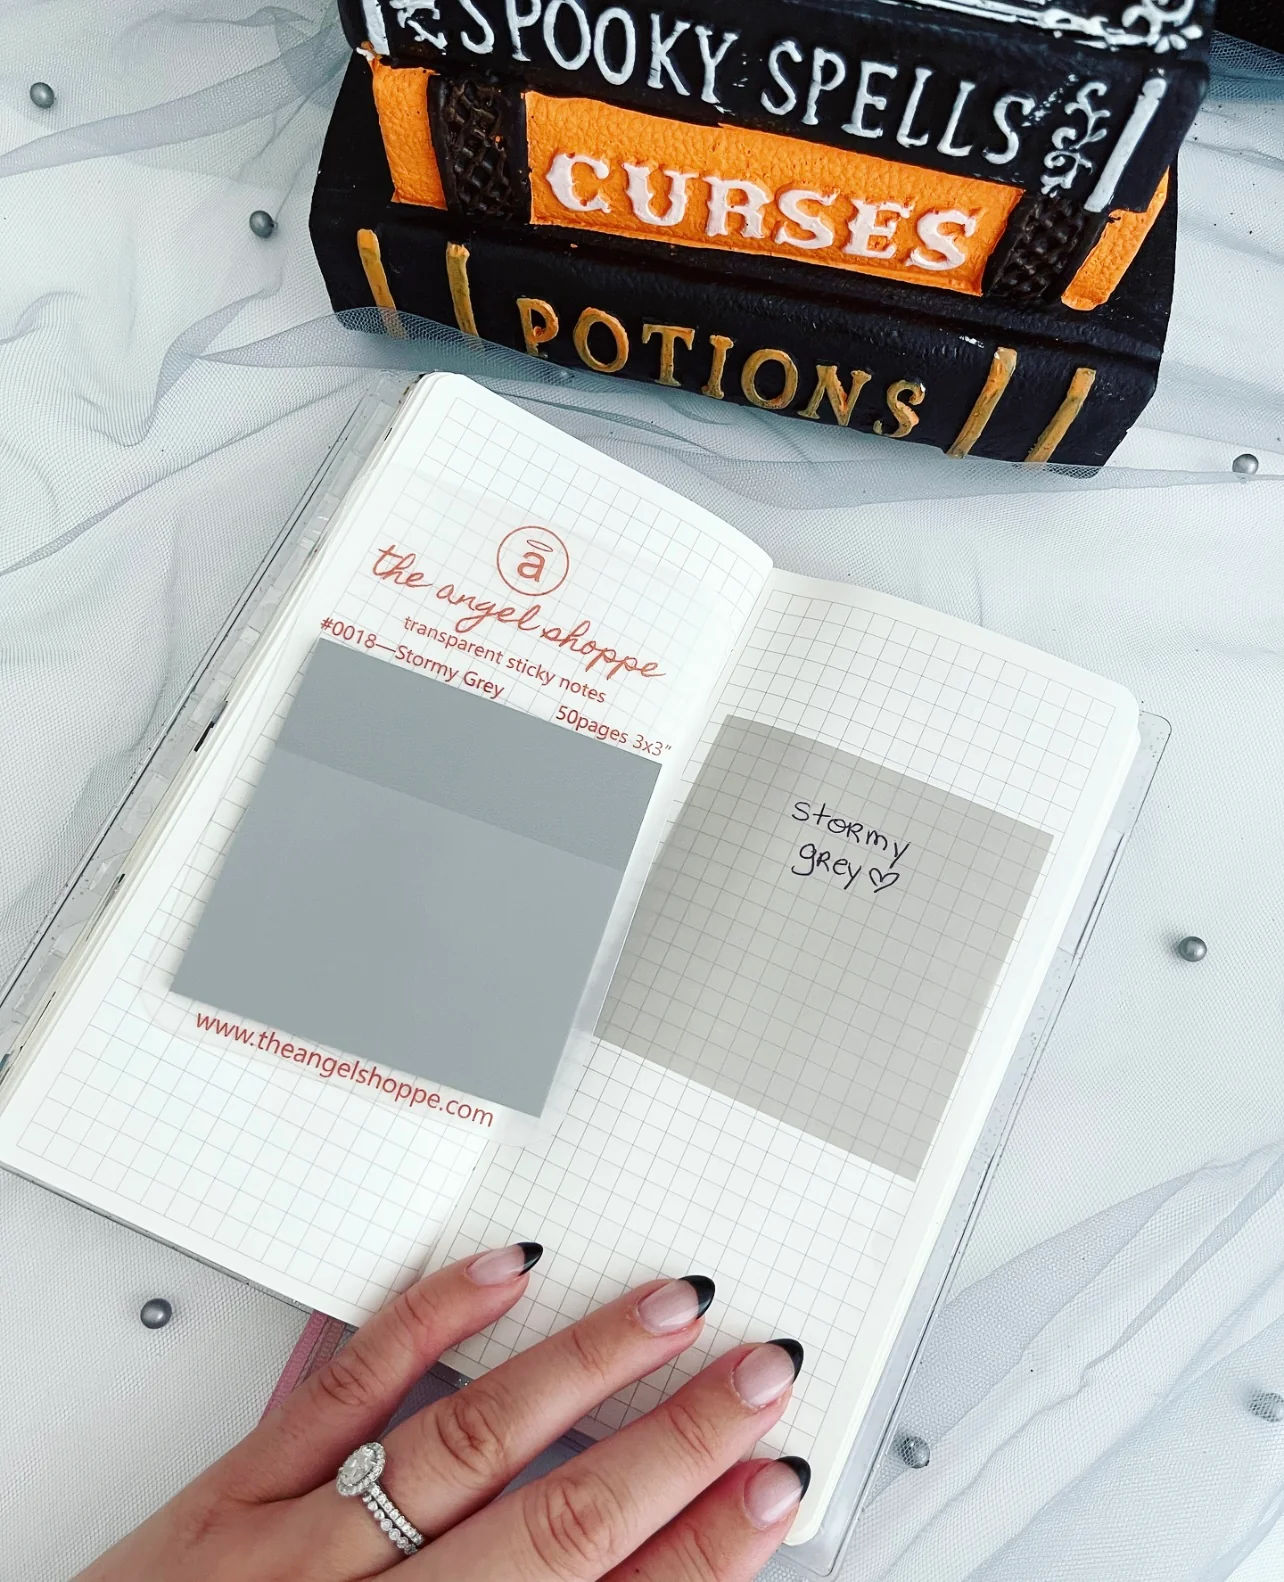 SPOOKY SPELLS
CURSES
POTIONS
a
the angel shoppe
transparent sticky notes
#0018—Stormy Grey
50pages 3x3"
www.theangelshoppe.com
stormy
grey♡